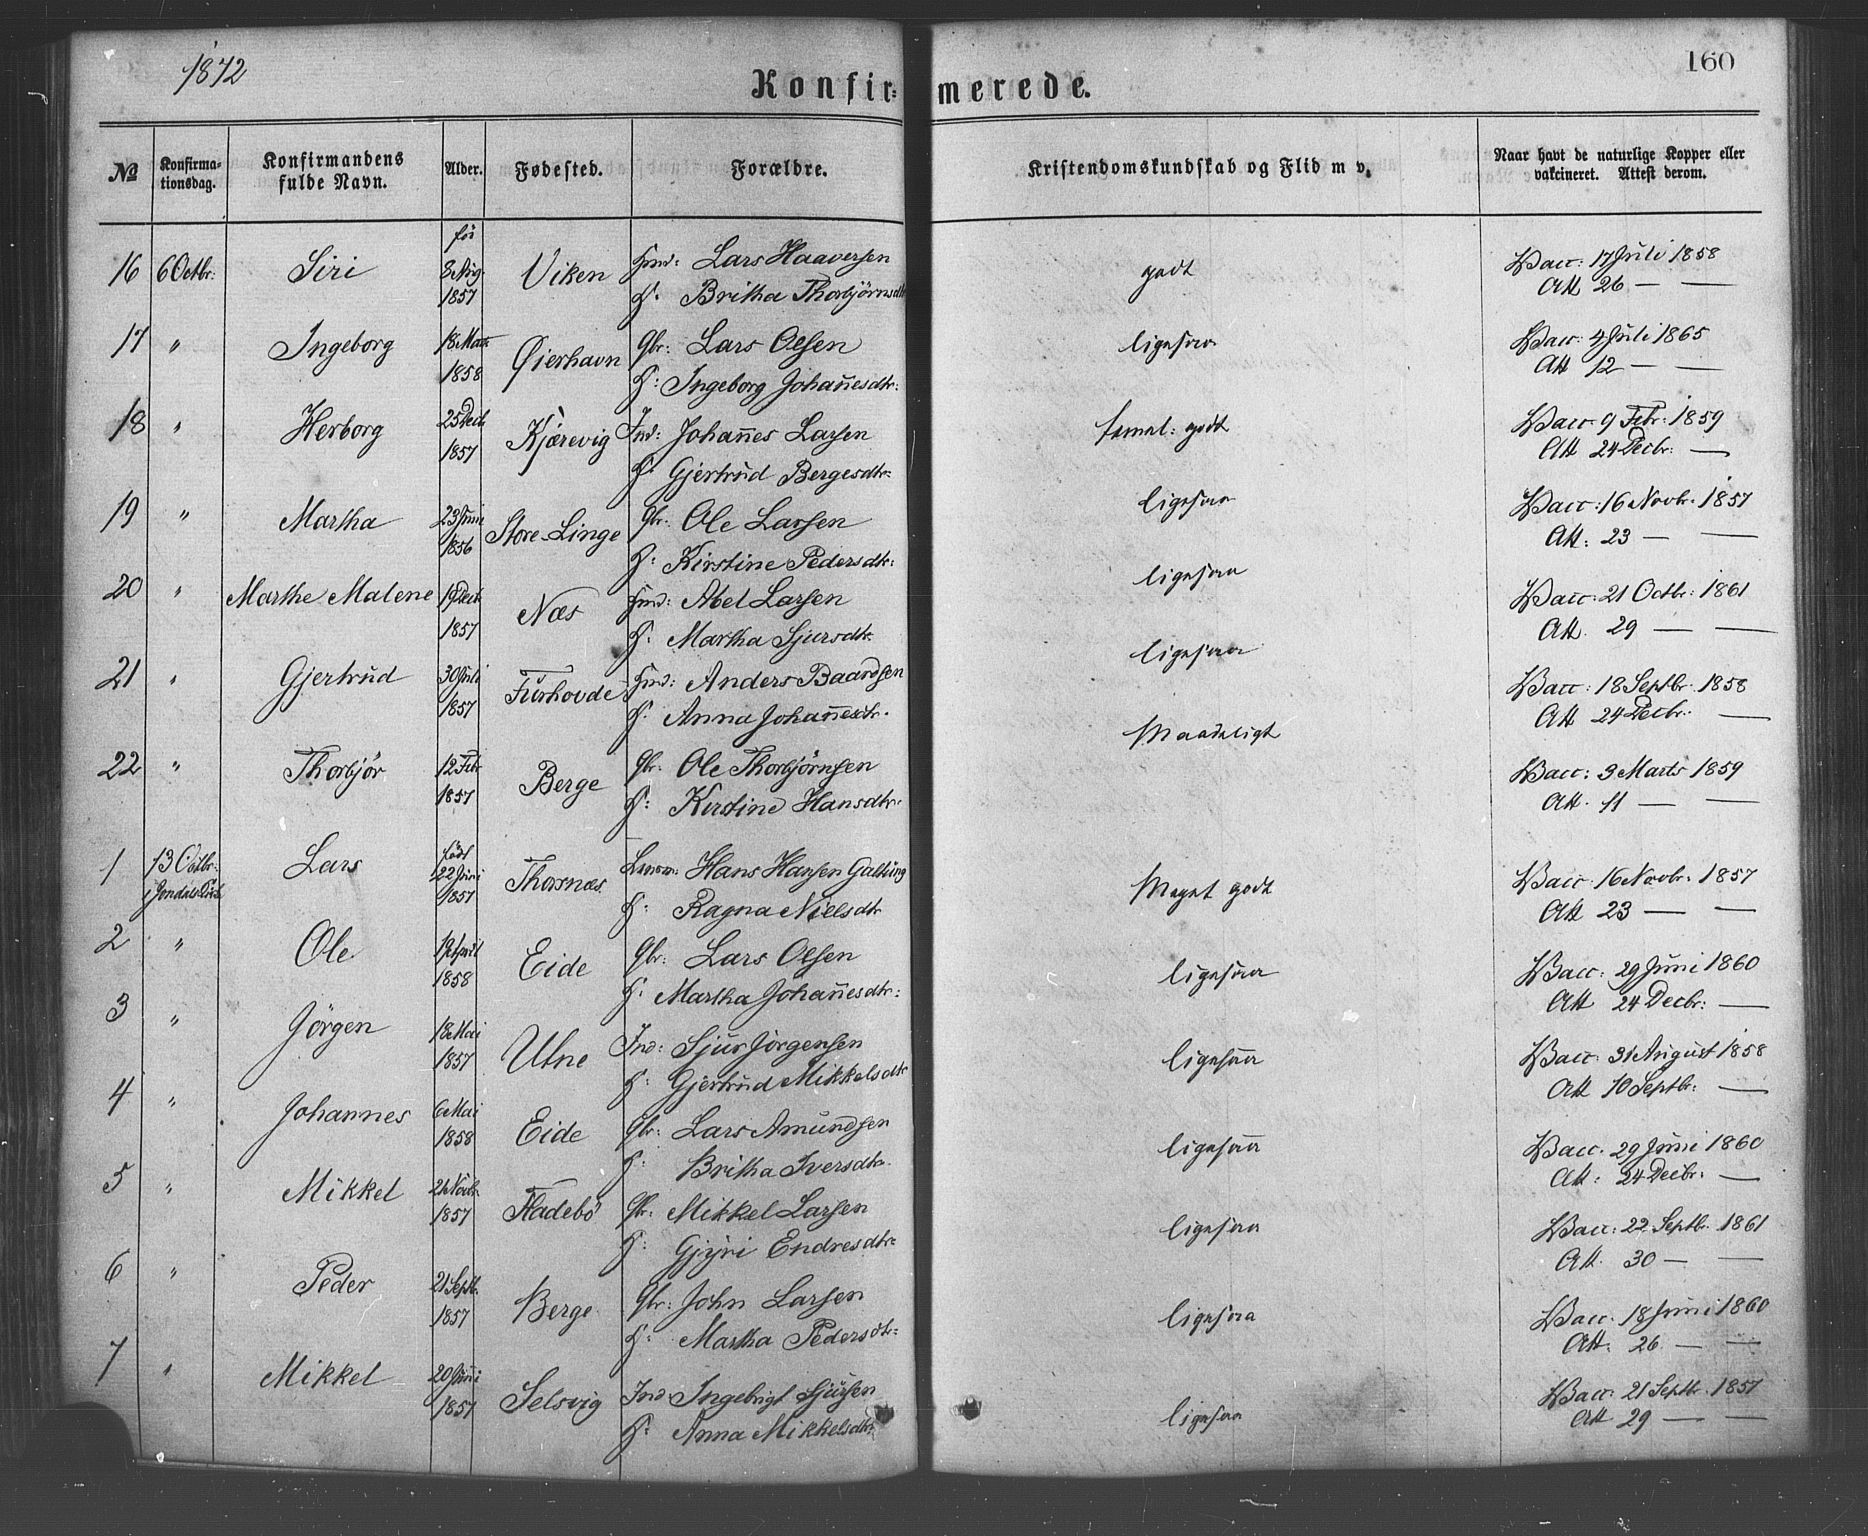 1872
160
Konfirmerede.
№ Konfirma-tionsdag. Konfirmandens fulde Navn. Alder. Fødested. Forældre. Kristendomskundskab og Flid m v. Naar havt de naturlige Kopper eller vakcineret. Attest derom.
16 6 Octbr: Siri 8 Aug. 1857 Viken Hmd: Lars Haaversen godt Vacc: 17 Juli 1858
H. Britha Thorbjörnsdtr Att 26 — —
17 " Ingeborg 18 1858 Øierhavn Gbr: Lars Olsen ligesaa Vacc: 4 Juli 1865
H: Ingeborg Johan̄esdtr: Att 12 — —
18 " Herborg 25 Decb 1857 Kjærevig Ind: Johan̄es Larsen temmel: godt Vacc 9 Febr: 1859
H. Gjertrud Bergesdtr. Att 24 Decbr: —
19 " Martha 23 Juni 1856 Store-Linge Gbr. Ole Larsen ligesaa Vacc: 16 Novbr. 1857
H: Kirstine Pedersdtr: Att: 23 — —
20 " Marthe Malene 1857 Næs Hmd: Abel Larsen ligesaa Vacc: 21 Octbr: 1861
H. Martha Sjursdtr. Att. 29 — —
21 " Gjertrud 30 Juli 1857 Furhovde Hmd: Anders Baardsen ligesaa Vacc: 18 Septbr. 1858
H. Anna Johan̄esdtr. Att 24 Decbr: —
22 " Thorbjör 12 Febr 1857 Berge Gbr: Ole Thorbjörnsen Maadeligt Vacc: 3 Marts 1859
H: Kirstine Hansdtr. Att. 11 — —
1 13 Octbr: i Jondals Kirke Lars født 22 Juni 1857 Thorsnæs Hans Hansen Galtung Meget godt Vacc. 16 Novbr. 1857
H: Ragna Nielsdtr Att 23 — —
2 " Ole 1858 Eide Gbr: Lars Olsen ligesaa Vacc: 29 Juni 1860
H. Martha Johan̄esdtr: Att 24 Decbr: —
3 " Jörgen 18 Mai 1857 Utne Ind: Sjur Jörgensen ligesaa Vacc: 31 August 1858
H: Gjertrud Mikkelsdtr Att 10 Septbr: —
4 " Johannes 6 Mai 1858 Eide Gbr: Lars Amundsen ligesaa Vacc. 29 Juni 1860
H: Britha Iversdtr. Att: 24 Decbr: —
5 " Mikkel 21 Novb. 1857 Fladebö Gbr: Mikkel Larsen ligesaa Vacc: 22 Septbr. 1861
H: Gjyri Endresdtr Att. 30 — —
6 " Peder 21 Septb. 1857 Berge Gbr: John Larsen ligesaa Vacc: 18 Juni 1860
H: Martha Pedersdtr: Att. 26 — —
7 " Mikkel 20 Juni 1857 Selsvig Ind: Ingebrigt Sjursen ligesaa Vacc: 21 Septbr. 1857
H: Anna Mikkelsdtr. Att 29 — —